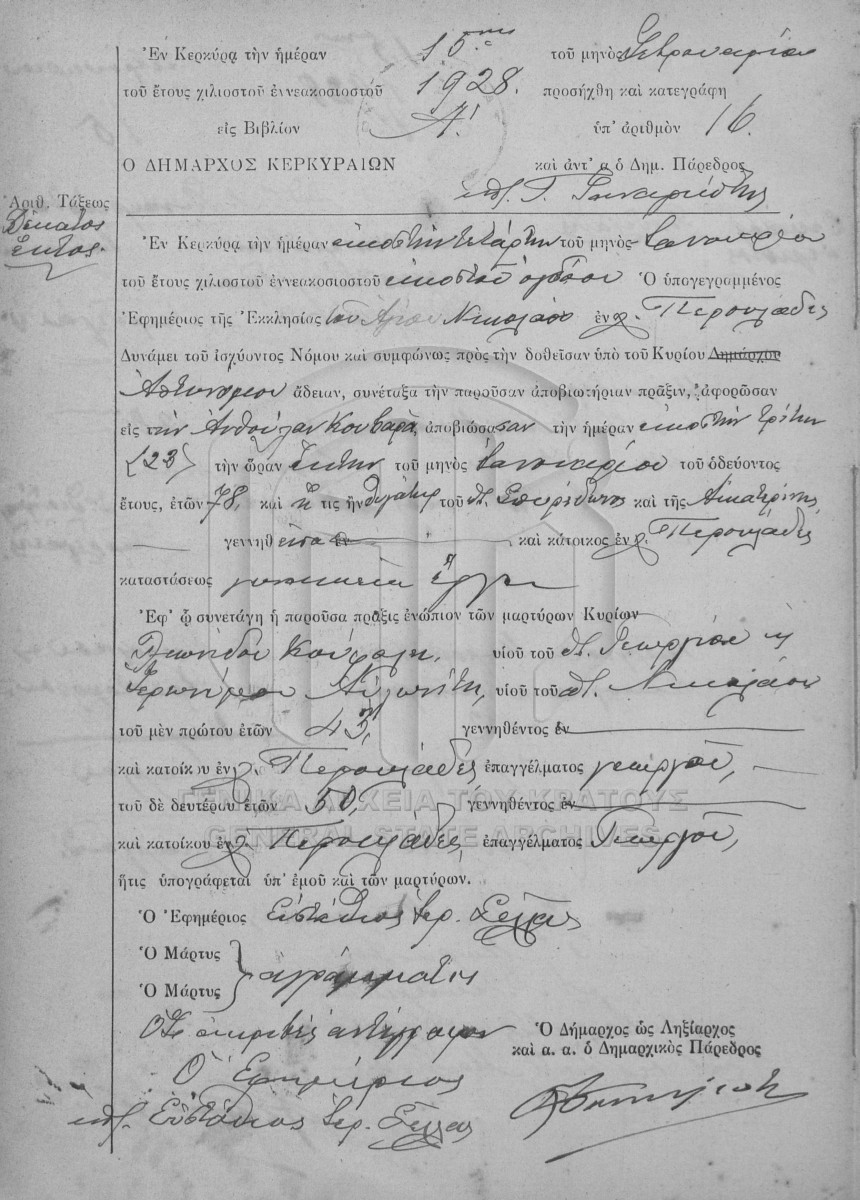 Ἐν Κερκύρᾳ τὴν ἡμέραν 15ην τοῦ μηνὸς Φεβρουαρίου
τοῦ ἔτους χιλιοστοῦ ἐννεακοσιοστοῦ 1928. προσήχθη καὶ κατεγράφη
εἰς Βιβλίον Α! ὑπ' ἀριθμὸν 16.
Ο ΔΗΜΑΡΧΟΣ ΚΕΡΚΥΡΑΙΩΝ καὶ ἀντ' α ὁ Δημ. Πάρεδρος
Ἀριθ. Τάξεως
Δέκατος
ἕκτος.
Ἐν Κερκύρᾳ τὴν ἡμέραν εἰκοστὴν τετάρτην τοῦ μηνὸς Ἰανουαρίου
τοῦ ἔτους χιλιοστοῦ ἐννεακοσιοστοῦ εἰκοστοῦ ὀγδόου Ὁ ὑπογεγραμμένος
Ἐφημέριος τῆς Ἐκκλησίας τοῦ Ἁγίου Νικολάου ἐν χ. Περουλάδες
Δυνάμει τοῦ ἰσχύοντος Νόμου καὶ συμφώνως πρὸς τὴν δοθεῖσαν ὑπὸ τοῦ Κυρίου Δημάρχου
Ἀστυνόμου ἄδειαν, συνέταξα τὴν παροῦσαν ἀποβιωτήριαν πρᾶξιν, ἀφορῶσαν
εἰς τὴν Ἀνθούλαν Κουβαρᾶ ἀποβιώσασαν τὴν ἡμέραν εἰκοστὴν τρίτην
(23) τὴν ὥραν ἕκτην τοῦ μηνὸς Ἰανουαρίου τοῦ ὁδεύοντος
ἔτους, ἐτῶν 78, καὶ ἥ τις ἦν θυγάτηρ τοῦ π. Σπυρίδωνος καὶ τῆς Αἰκατερίνης,
γεννηθεῖσα ἐν καὶ κάτοικος ἐν χ. Περουλάδες
καταστάσεως γυναικεῖα ἔργα
Ἐφ' ᾧ συνετάγη ἡ παροῦσα πρᾶξις ἐνώπιον τῶν μαρτύρων Κυρίων
Λεωνίδου υἱοῦ τοῦ π. Γεωργίου κ
Ἱερωνύμου υἱοῦ τοῦ π. Νικολάου
τοῦ μὲν πρώτου ἐτῶν 43, γεννηθέντος ἐν
καὶ κατοίκου ἐν χ. Περουλάδες ἐπαγγέλματος γεωργοῦ,
τοῦ δὲ δευτέρου ἐτῶν 50, γεννηθέντος ἐν
καὶ κατοίκου ἐν χ. Περουλάδες, ἐπαγγέλματος Γεωργοῦ,
ἥτις ὑπογράφεται ὑπ' ἐμοῦ καὶ τῶν μαρτύρων.
Ὁ Ἐφημέριος Εὐστάθιος Ἱερ. Σέλλας
Ὁ Μάρτυς
Ὁ Μάρτυς
ἀγράμματοι
Ὅτι ἀκριβὲς ἀντίγραφον
Ὁ Ἐφημέριος
Εὐστάθιος Ἱερ. Σέλλας
Ὁ Δήμαρχος ὡς Ληξίαρχος
καὶ α. α. ὁ Δημαρχικὸς Πάρεδρος
ΓΕΝΙΚΑ ΑΡΧΕΙΑ ΤΟΥ ΚΡΑΤΟΥΣ
GENERAL STATE ARCHIVES